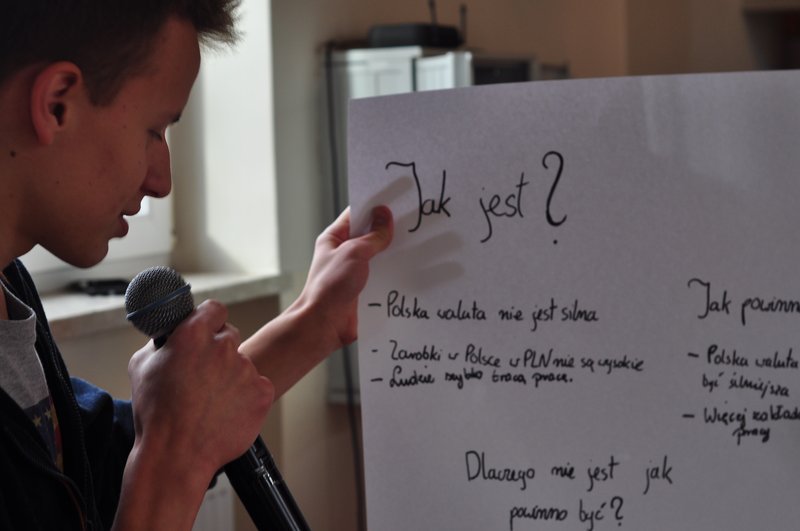 Jak jest?
- Polska waluta nie jest silna
- Zarobki w Polsce w PLN nie są wysokie
- Ludzie szybko tracą pracę.
Jak powinn
- Polska waluta
być silniejsza
- Więcej zakład
pracy
Dlaczego nie jest jak
powinno być?